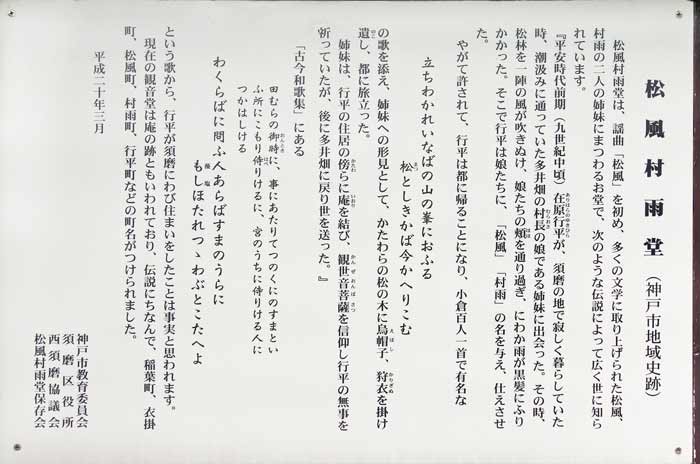 松風村雨堂(神戸市地域史跡)
松風村雨堂は、謡曲「松風」を初め、多くの文学に取り上げられた松風、
村雨の二人の姉妹にまつわるお堂で、次のような伝説によって広く世に知ら
れています。
『平安時代前期(九世紀中頃)在原行平が、須磨の地で寂しく暮らしていた
時、潮汲みに通っていた多井畑の村長の娘である姉妹に出会った。その時、
松林を一陣の風が吹きぬけ、娘たちの頬を通り過ぎ、にわか雨が黒髪にふり
かかった。そこで行平は娘たちに、「松風」「村雨」の名を与え、仕えさせ
た。
やがて許されて、行平は都に帰ることになり、小倉百人一首で有名な
立ちわかれいなばの山の峯におふる
松としきかば今かへりこむ
の歌を添え、姉妹への形見として、かたわらの松の木に烏帽子、狩衣を掛け
遺し、都に旅立った。
姉妹は、行平の住居の傍らに庵を結び、観世音菩薩を信仰し行平の無事を
祈っていたが、後に多井畑に戻り世を送った。』
「古今和歌集」にある
田むらの御時に、事にあたりてつのくにのすまとい
ふ所にこもり侍りけるに、宮のうちに侍りける人に
つかはしける
わくらばに問ふ人あらばすまのうらに
もしほたれつゝわぶとこたへよ
という歌から、行平が須磨にわび住まいをしたことは事実と思われます。
現在の観音堂は庵の跡ともいわれており、伝説にちなんで、稲葉町、衣掛
町、松風町、村雨町、行平町などの町名がつけられました。
平成二十年三月
神戸市教育委員会
須磨区役所
西須磨協議会
松風村雨堂保存会